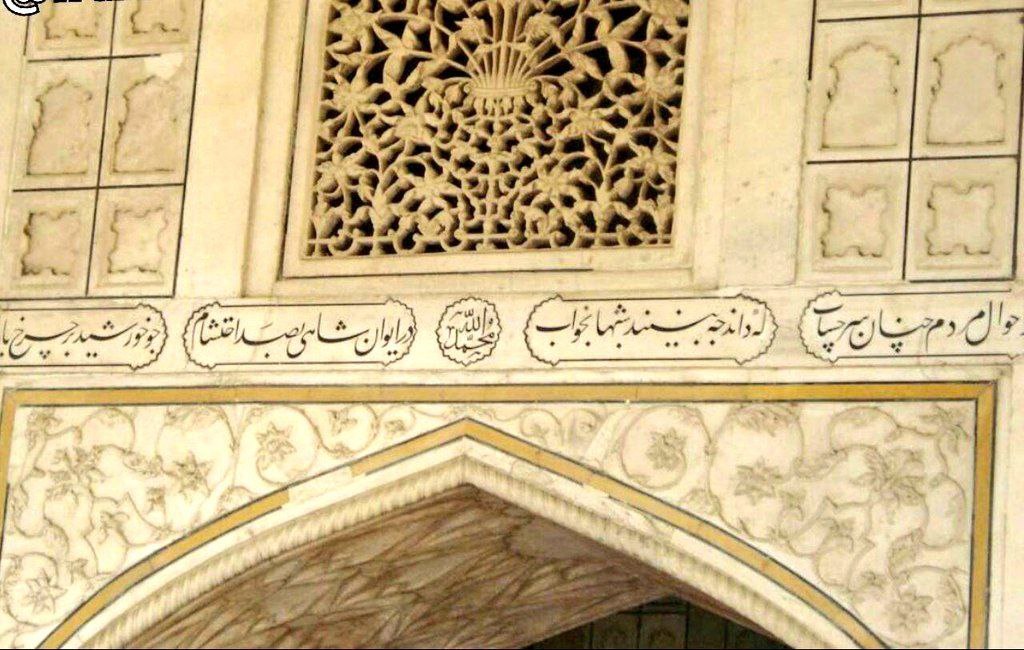 حوال مردم چنان سر حساب
که داند چه بینند شبها بخواب
الله محمد
در ایوان شاهی بصد احتشام
چو خورشید بر چرخ با